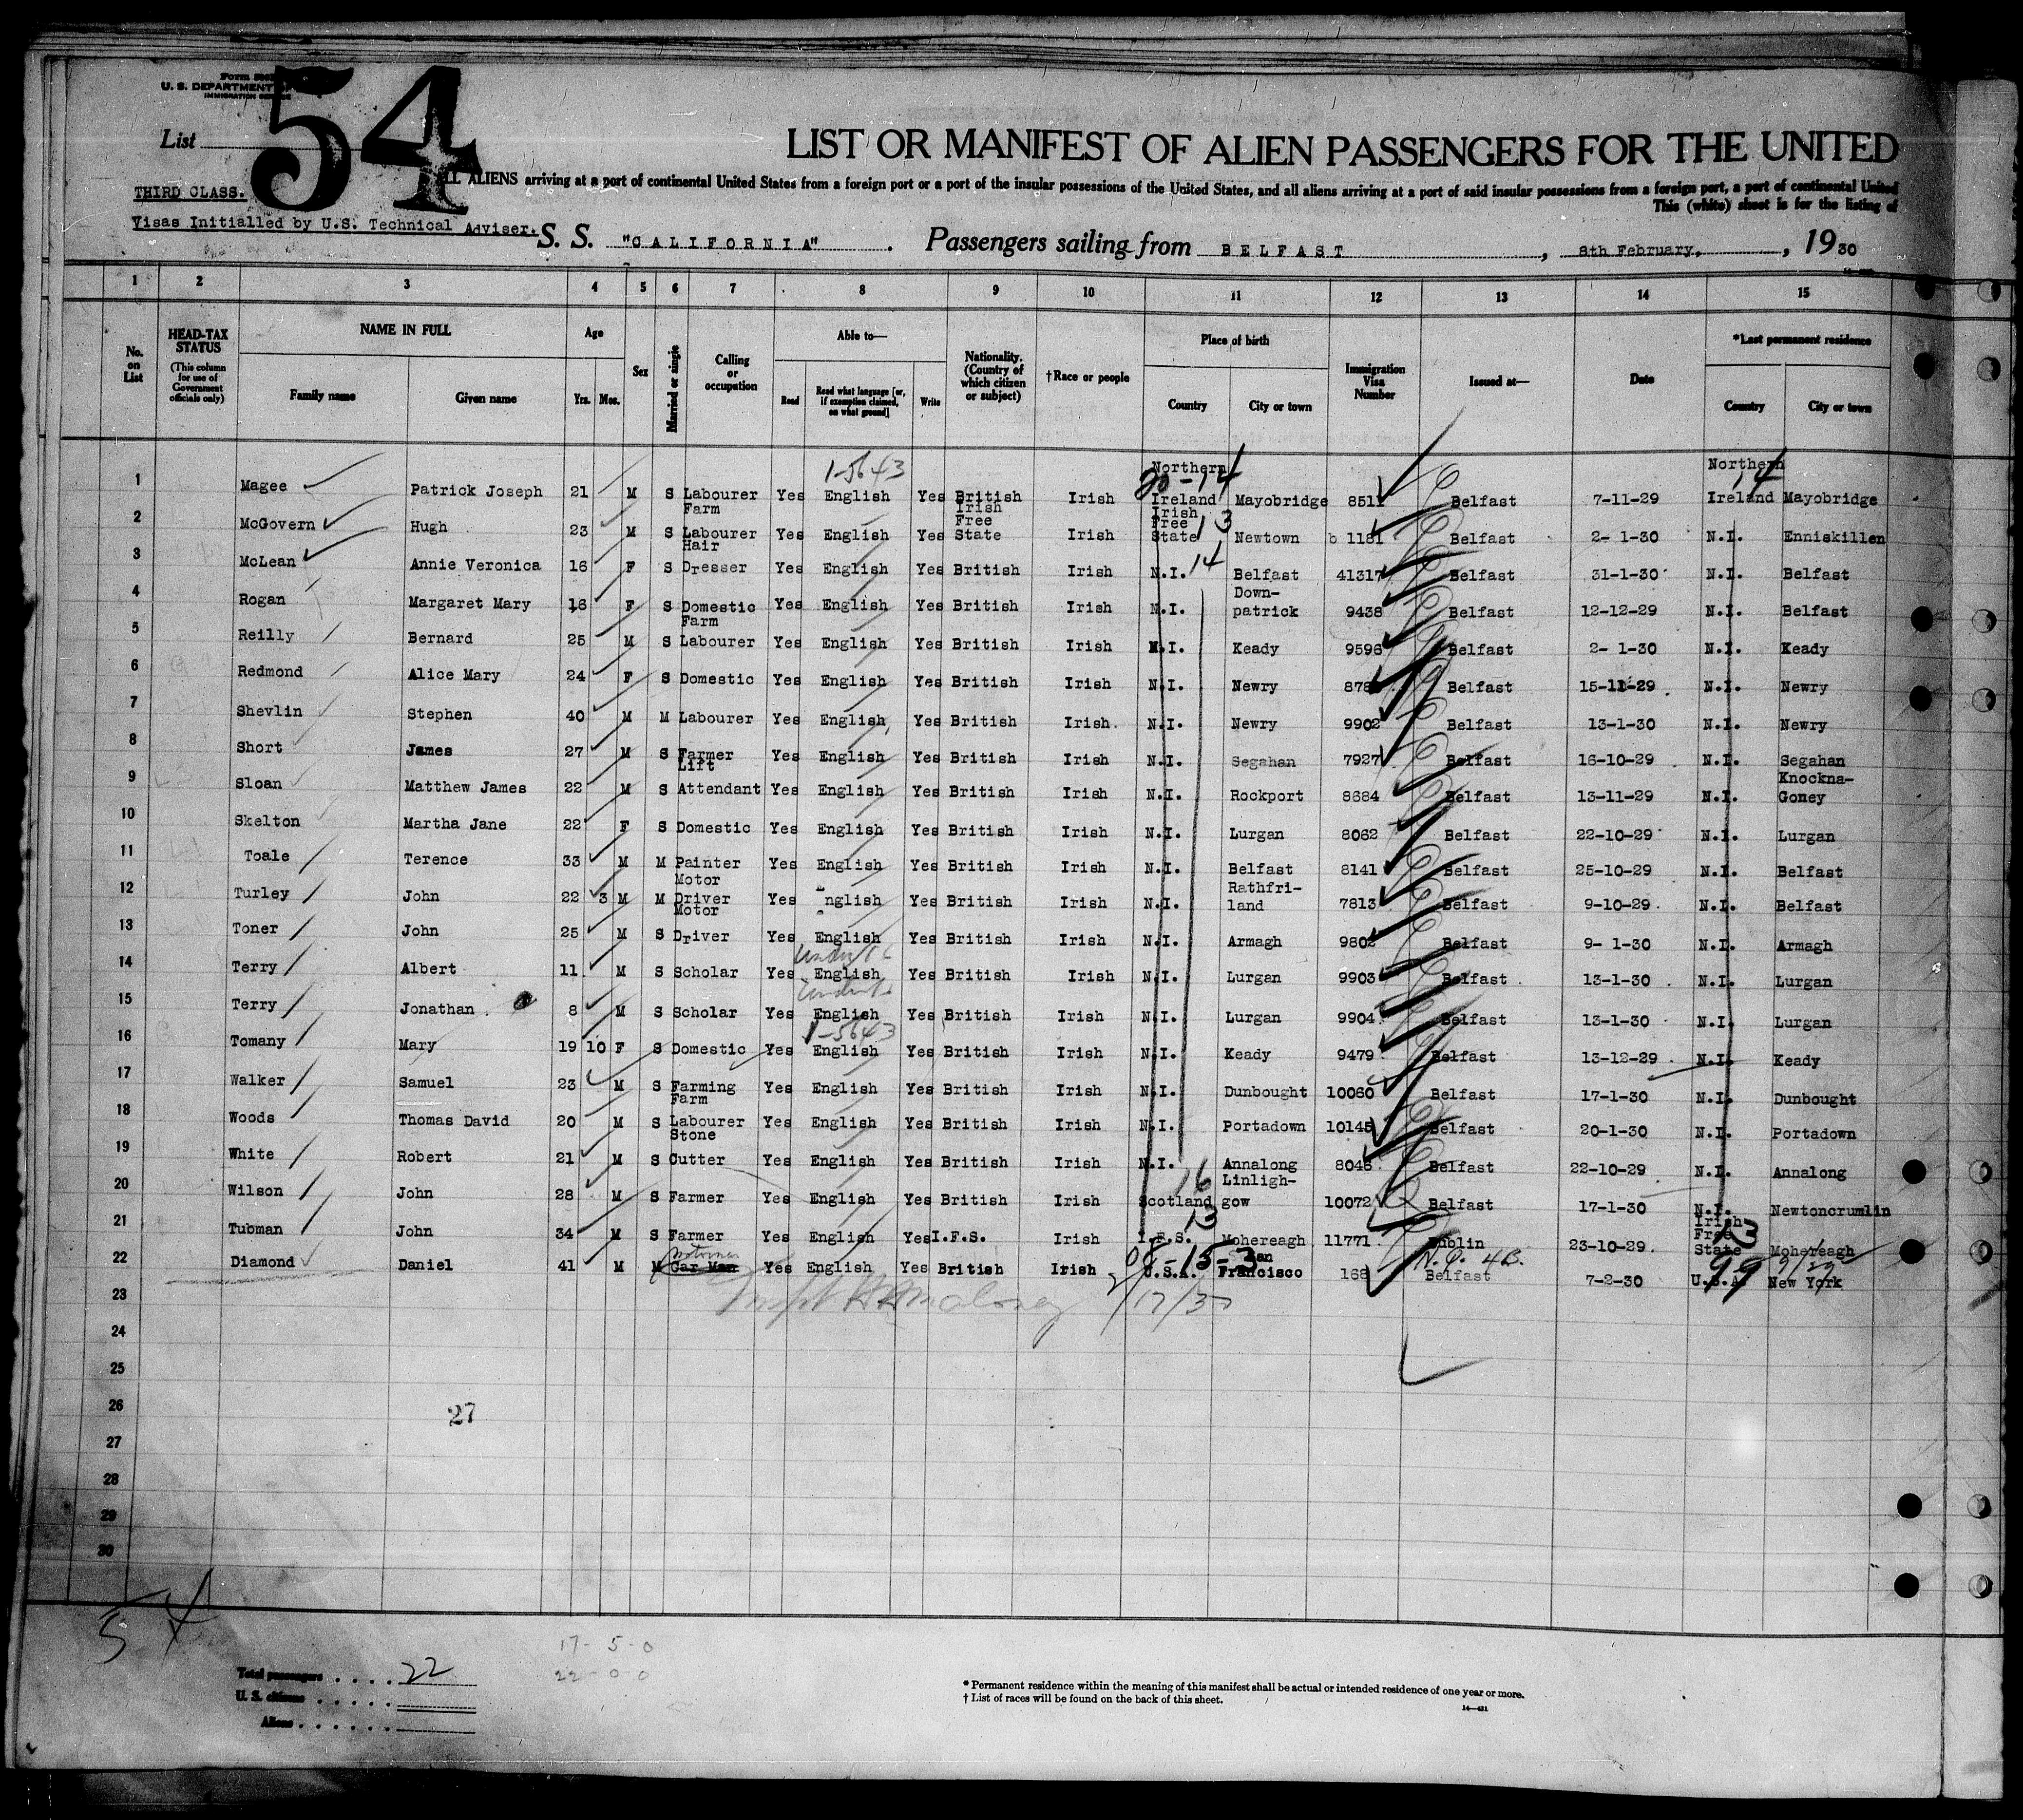 Form
U. S. DEPARTMENT
IMMIGRATION
54
List
LIST OR MANIFEST OF ALIEN PASSENGERS FOR THE UNITED
ALL ALIENS arriving at a port of continental United States from a foreign port or a port of the insular possessions of the United States, and all aliens arriving at a port of said insular possessions from a foreign port, a port of continental United
THIRD CLASS.
This (white) sheet is for the listing of
Visas Initialled by U.S. Technical Adviser.
S. S. "CALIFORNIA" . Passengers sailing from BELFAST , 8th February, , 1930
1 2 3 4 5 6 7 8 9 10 11 12 13 14 15
No. on List
HEAD-TAX STATUS (This column for use of Government officials only)
NAME IN FULL Family name Given name
Age Yrs. Mos.
Sex
Married or single
Calling or occupation
Able to— Read Read what language [or, if exemption claimed, on what ground] Write
Nationality. (Country of which citizen or subject)
†Race or people
Place of birth Country City or town
Immigration Visa Number
Issued at—
Date
*Last permanent residence Country City or town
1-5643 20-14 14
1 Magee Patrick Joseph 21 M S Labourer Yes English Yes British Irish Northern Ireland Mayobridge 8511 Belfast 7-11-29 Northern Ireland Mayobridge
2 McGovern Hugh 23 M S Farm Labourer Yes English Yes Irish Free State Irish Irish Free State 13 Newtown b 1181 Belfast 2- 1-30 N.I. Enniskillen
3 McLean Annie Veronica 16 F S Hair Dresser Yes English Yes British Irish N.I. 14 Belfast 41317 Belfast 31-1-30 N.I. Belfast
4 Rogan Margaret Mary 16 F S Domestic Yes English Yes British Irish N.I. Down-patrick 9438 Belfast 12-12-29 N.I. Belfast
5 Reilly Bernard 25 M S Farm Labourer Yes English Yes British Irish N.I. Keady 9596 Belfast 2- 1-30 N.I. Keady
6 Redmond Alice Mary 24 F S Domestic Yes English Yes British Irish N.I. Newry Belfast 15-11-29 N.I. Newry
7 Shevlin Stephen 40 M M Labourer Yes English Yes British Irish. N.I. Newry 9902 Belfast 13-1-30 N.I. Newry
8 Short James 27 M S Farmer Yes English Yes British Irish N.I. Segahan 7927 Belfast 16-10-29 N.I. Segahan
9 Sloan Matthew James 22 M S Lift Attendant Yes English Yes British Irish N.I. Rockport 8684 Belfast 13-11-29 N.I. Knockna-Goney
10 Skelton Martha Jane 22 F S Domestic Yes English Yes British Irish N.I. Lurgan 8062 Belfast 22-10-29 N.I. Lurgan
11 Toale Terence 33 M M Painter Yes English Yes British Irish N.I. Belfast 8141 Belfast 25-10-29 N.I. Belfast
12 Turley John 22 3 M M Motor Driver Yes nglish Yes British Irish N.I. Rathfri-land 7813 Belfast 9-10-29 N.I. Belfast
13 Toner John 25 M S Motor Driver Yes English Yes British Irish N.I. Armagh 9802 Belfast 9- 1-30 N.I. Armagh
under 16
14 Terry Albert 11 M S Scholar Yes English Yes British Irish N.I. Lurgan 9903 Belfast 13-1-30 N.I. Lurgan
15 Terry Jonathan 8 M S Scholar Yes English Yes British Irish N.I. Lurgan 9904 Belfast 13-1-30 N.I. Lurgan
1-5643
16 Tomany Mary 19 10 F S Domestic Yes English Yes British Irish N.I. Keady 9479 Belfast 13-12-29 N.I. Keady
17 Walker Samuel 23 M S Farming Yes English Yes British Irish N.I. Dunbought 10060 Belfast 17-1-30 N.I. Dunbought
18 Woods Thomas David 20 M S Farm Labourer Yes English Yes British Irish N.I. Portadown 10145 Belfast 20-1-30 N.I. Portadown
19 White Robert 21 M S Stone Cutter Yes English Yes British Irish N.I. Annalong 8046 Belfast 22-10-29 N.I. Annalong
20 Wilson John 28 M S Farmer Yes English Yes British Irish Scotland 16 Linligh-gow 10072 Belfast 17-1-30 N.I. Newtoncrumlin
21 Tubman John 34 M S Farmer Yes English Yes I.F.S. Irish I.F.S. 13 Mohereagh 11771 Dublin 23-10-29 Irish Free State 13 Mohereagh
22 Diamond Daniel 41 M M Car Man Yes English Yes British Irish U.S.A. San Francisco 168 N.Q. 4B. Belfast 7-2-30 U.S.A. 99 New York
23
24
25
26
27
27
28
29
30
54
17-5-0
22-0-0
Total passengers . . . . 22
U. S. citizens . . . . .
Aliens . . . . . .
* Permanent residence within the meaning of this manifest shall be actual or intended residence of one year or more.
† List of races will be found on the back of this sheet.
14—431